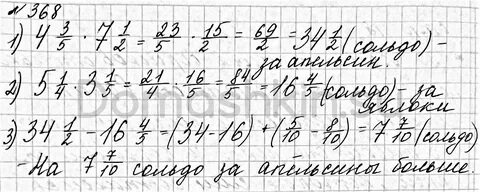 № 368
1) 4 3/5 · 7 1/2 = 23/5 · 15/2 = 69/2 = 34 1/2 (сольдо) -
за апельсин.
2) 5 1/4 · 3 1/5 = 21/4 · 16/5 = 84/5 = 16 4/5 (сольдо) - за
яблоки
3) 34 1/2 - 16 4/5 = (34-16) + (5/10 - 8/10) = 7 7/10 (сольдо)
- На 7 7/10 сольдо за апельсины больше.